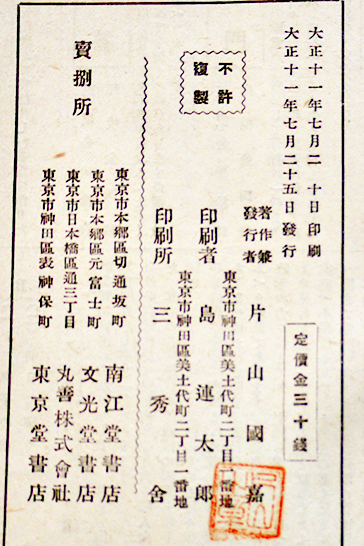 大正十一年七月二十日印刷
大正十一年七月二十五日發行
定價金三十錢
著作兼
發行者 片山國嘉
東京市神田區美土代町二丁目一番地
印刷者 島連太郎
東京市神田區美土代町二丁目一番地
印刷所 三秀舍
不許
複製
賣捌所
東京市本郷區切通坂町 南江堂書店
東京市本郷區元富士町 文光堂書店
東京市日本橋區通三丁目 丸善株式會社
東京市神田區表神保町 東京堂書店